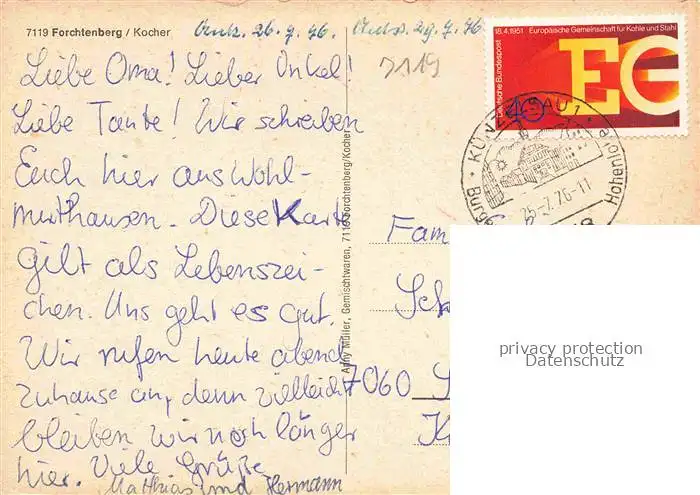 7119 Forchtenberg / Kocher
Ank. 26.7.76.
29.7.76
7119
Liebe Oma! Lieber Onkel!
Liebe Tante! Wir schreiben
Euch hier aus Wohl-
muthausen. Diese Karte
gilt als Lebenszei-
chen. Uns geht es gut.
Wir rufen heute abend
zuhause an, denn vielleicht
bleiben wir noch länger
hier. Viele Grüße
Matthias und Hermann
Anny Müller, Gemischtwaren, 7119 Forchtenberg/Kocher
18.4.1951 Europäische Gemeinschaft für Kohle und Stahl
Deutsche Bundespost
EG
40
KÜNZELSAU 1
25-7.76-11
Hohenlohe
Fam
Sch
7060 S
privacy protection
Datenschutz